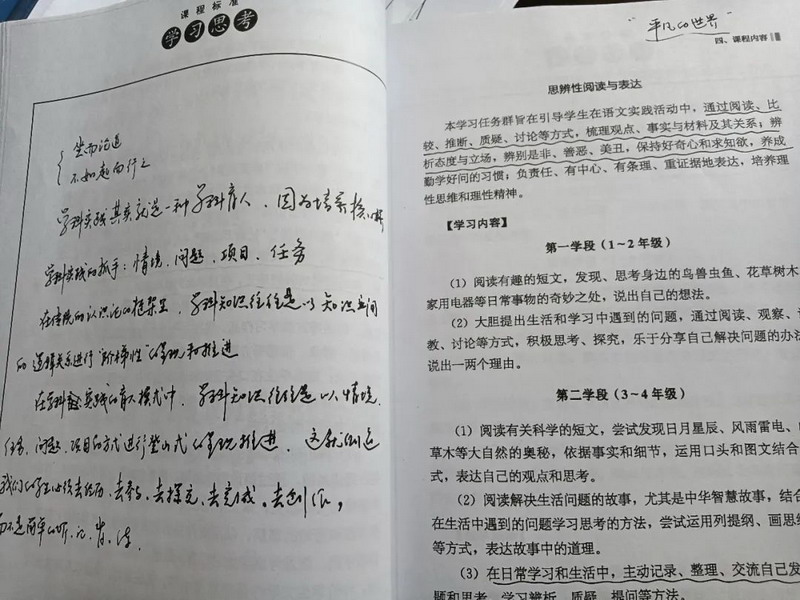 课程标准
学习思考
坐而论道
不如起而行之
学科实践其实就是一种学科育人，因为培养核心
学科实践的抓手：情境、问题、项目、任务
在传统的认识论的框架里，学科知识往往是以知识之间
的逻辑关系进行“阶梯性”的呈现和推进
在学科实践的育人模式中，学科知识往往是以情境、
任务、问题、项目的方式进行登山式的呈现推进，这就倒逼
我们的学生必须去经历、去参与、去探究、去完成、去创作，
而不是简单的听、记、背、读。
“平凡的世界”
四、课程内容
思辨性阅读与表达
本学习任务群旨在引导学生在语文实践活动中，通过阅读、比
较、推断、质疑、讨论等方式，梳理观点、事实与材料及其关系；辨
析态度与立场，辨别是非、善恶、美丑，保持好奇心和求知欲，养成
勤学好问的习惯；负责任、有中心、有条理、重证据地表达，培养理
性思维和理性精神。
【学习内容】
第一学段（1～2年级）
（1）阅读有趣的短文，发现、思考身边的鸟兽虫鱼、花草树木
家用电器等日常事物的奇妙之处，说出自己的想法。
（2）大胆提出生活和学习中遇到的问题，通过阅读、观察、请
教、讨论等方式，积极思考、探究，乐于分享自己解决问题的办法
说出一两个理由。
第二学段（3～4年级）
（1）阅读有关科学的短文，尝试发现日月星辰、风雨雷电、
草木等大自然的奥秘，依据事实和细节，运用口头和图文结合
式，表达自己的观点和思考。
（2）阅读解决生活问题的故事，尤其是中华智慧故事，结合
在生活中遇到的问题学习思考的方法，尝试运用列提纲、画思维
等方式，表达故事中的道理。
（3）在日常学习和生活中，主动记录、整理、交流自己发
题和思考，学习辨析、质疑、提问等方法。